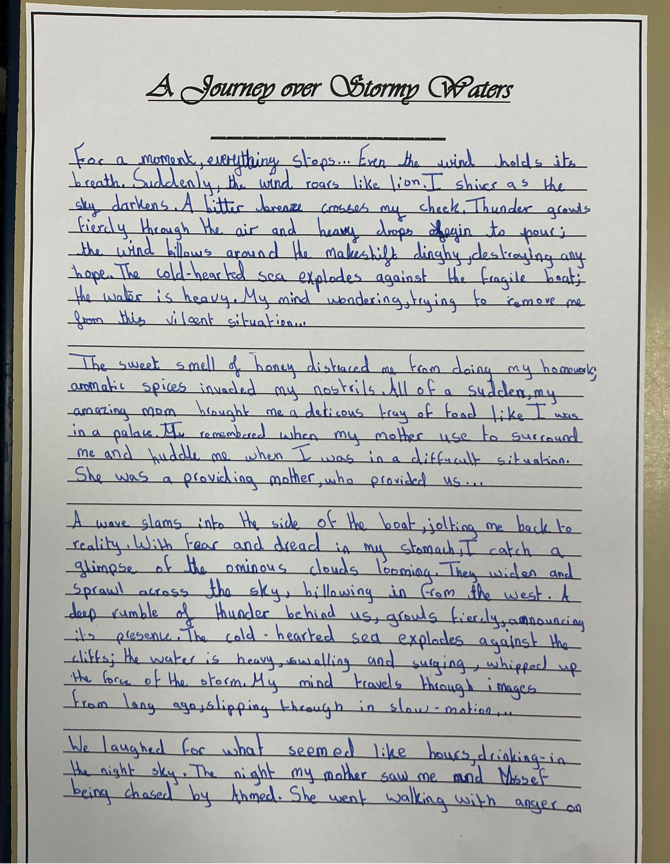 A Journey over Stormy Waters
For a moment, everything stops... Even the wind holds its
breath. Suddenly, the wind roars like lion. I shiver as the
sky darkens. A bitter breeze crosses my cheek. Thunder growls
fiercly through the air and heavy drops begin to pour;
the wind billows around the makeshift dinghy, destroying any
hope. The cold-hearted sea explodes against the fragile boat;
the water is heavy. My mind wondering, trying to remove me
from this viloent situation...
The sweet smell of honey distraced me from doing my homework;
aromatic spices invaded my nostrils. All of a sudden, my
amazing mom brought me a delicous tray of food like I was
in a palace. I remembered when my mother use to surround
me and huddle me when I was in a difficult situation.
She was a providing mother, who provided us...
A wave slams into the side of the boat, jolting me back to
reality. With fear and dread in my stomach, I catch a
glimpse of the ominous clouds looming. They widen and
sprawl across the sky, billowing in from the west. A
deep rumble of thunder behind us, growls fiercly, announcing
its presence. The cold-hearted sea explodes against the
cliffs; the water is heavy, swelling and surging, whipped up
the force of the storm. My mind travels through images
from long ago, slipping through in slow-motion...
We laughed for what seemed like hours, drinking-in
the night sky. The night my mother saw me and Yossef
being chased by Ahmed. She went walking with anger on